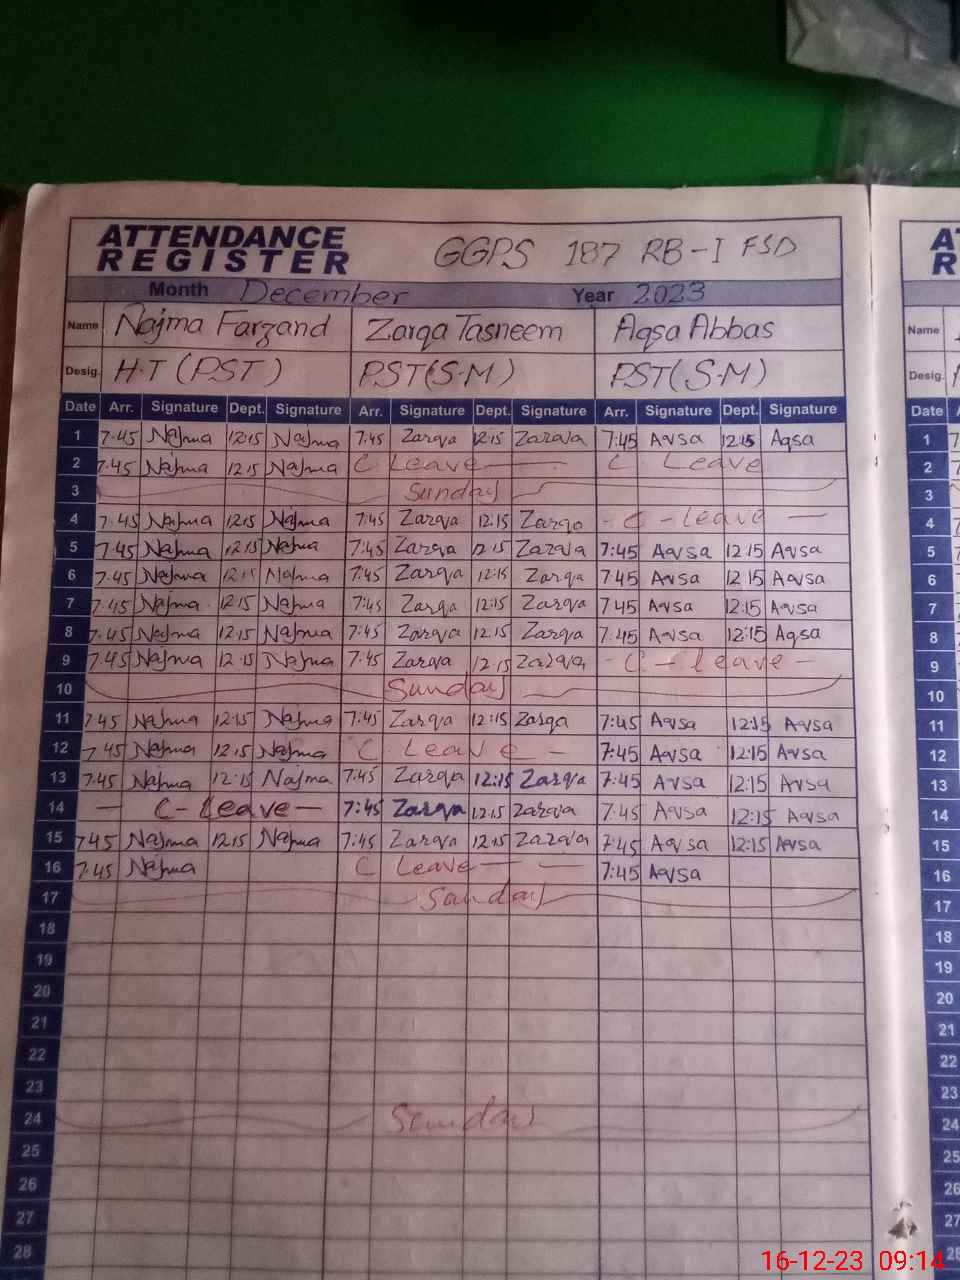 ATTENDANCE REGISTER GGPS 187 RB-I FSD
Month December Year 2023
Name Najma Farzand Zarqa Tasneem Aqsa Abbas
Desig. H.T (PST) PST(S-M) PST(S-M)
Date Arr. Signature Dept. Signature Arr. Signature Dept. Signature Arr. Signature Dept. Signature
1 7.45 Najma 12:15 Najma 7:45 Zarqa 12:15 Zarqa 7:45 Aqsa 12:15 Aqsa
2 7.45 Najma 12.15 Najma C Leave — C. Leave
3 Sunday
4 7.45 Najma 12:15 Najma 7:45 Zarqa 12:15 Zarqa - C - Leave —
5 7.45 Najma 12:15 Najma 7:45 Zarqa 12:15 Zarqa 7:45 Aqsa 12:15 Aqsa
6 7.45 Najma 12:15 Najma 7:45 Zarqa 12:15 Zarqa 7:45 Aqsa 12:15 Aqsa
7 7.45 Najma 12:15 Najma 7:45 Zarqa 12:15 Zarqa 7:45 Aqsa 12:15 Aqsa
8 7.45 Najma 12:15 Najma 7:45 Zarqa 12:15 Zarqa 7:45 Aqsa 12:15 Aqsa
9 7.45 Najma 12.15 Najma 7:45 Zarqa 12:15 Zarqa - C - Leave -
10 Sunday
11 7.45 Najma 12:15 Najma 7:45 Zarqa 12:15 Zarqa 7:45 Aqsa 12:15 Aqsa
12 7.45 Najma 12:15 Najma C. Leave — 7:45 Aqsa 12:15 Aqsa
13 7.45 Najma 12:15 Najma 7:45 Zarqa 12:15 Zarqa 7:45 Aqsa 12:15 Aqsa
14 — C- Leave — 7:45 Zarqa 12:15 Zarqa 7:45 Aqsa 12:15 Aqsa
15 7.45 Najma 12:15 Najma 7:45 Zarqa 12:15 Zarqa 7:45 Aqsa 12:15 Aqsa
16 7.45 Najma C Leave — — 7:45 Aqsa
17 Sunday
18
19
20
21
22
23
24 Sunday
25
26
27
28
Name
Desig.
Date
1
2
3
4
5
6
7
8
9
10
11
12
13
14
15
16
17
18
19
20
21
22
23
24
25
26
27
28
16-12-23 09:14